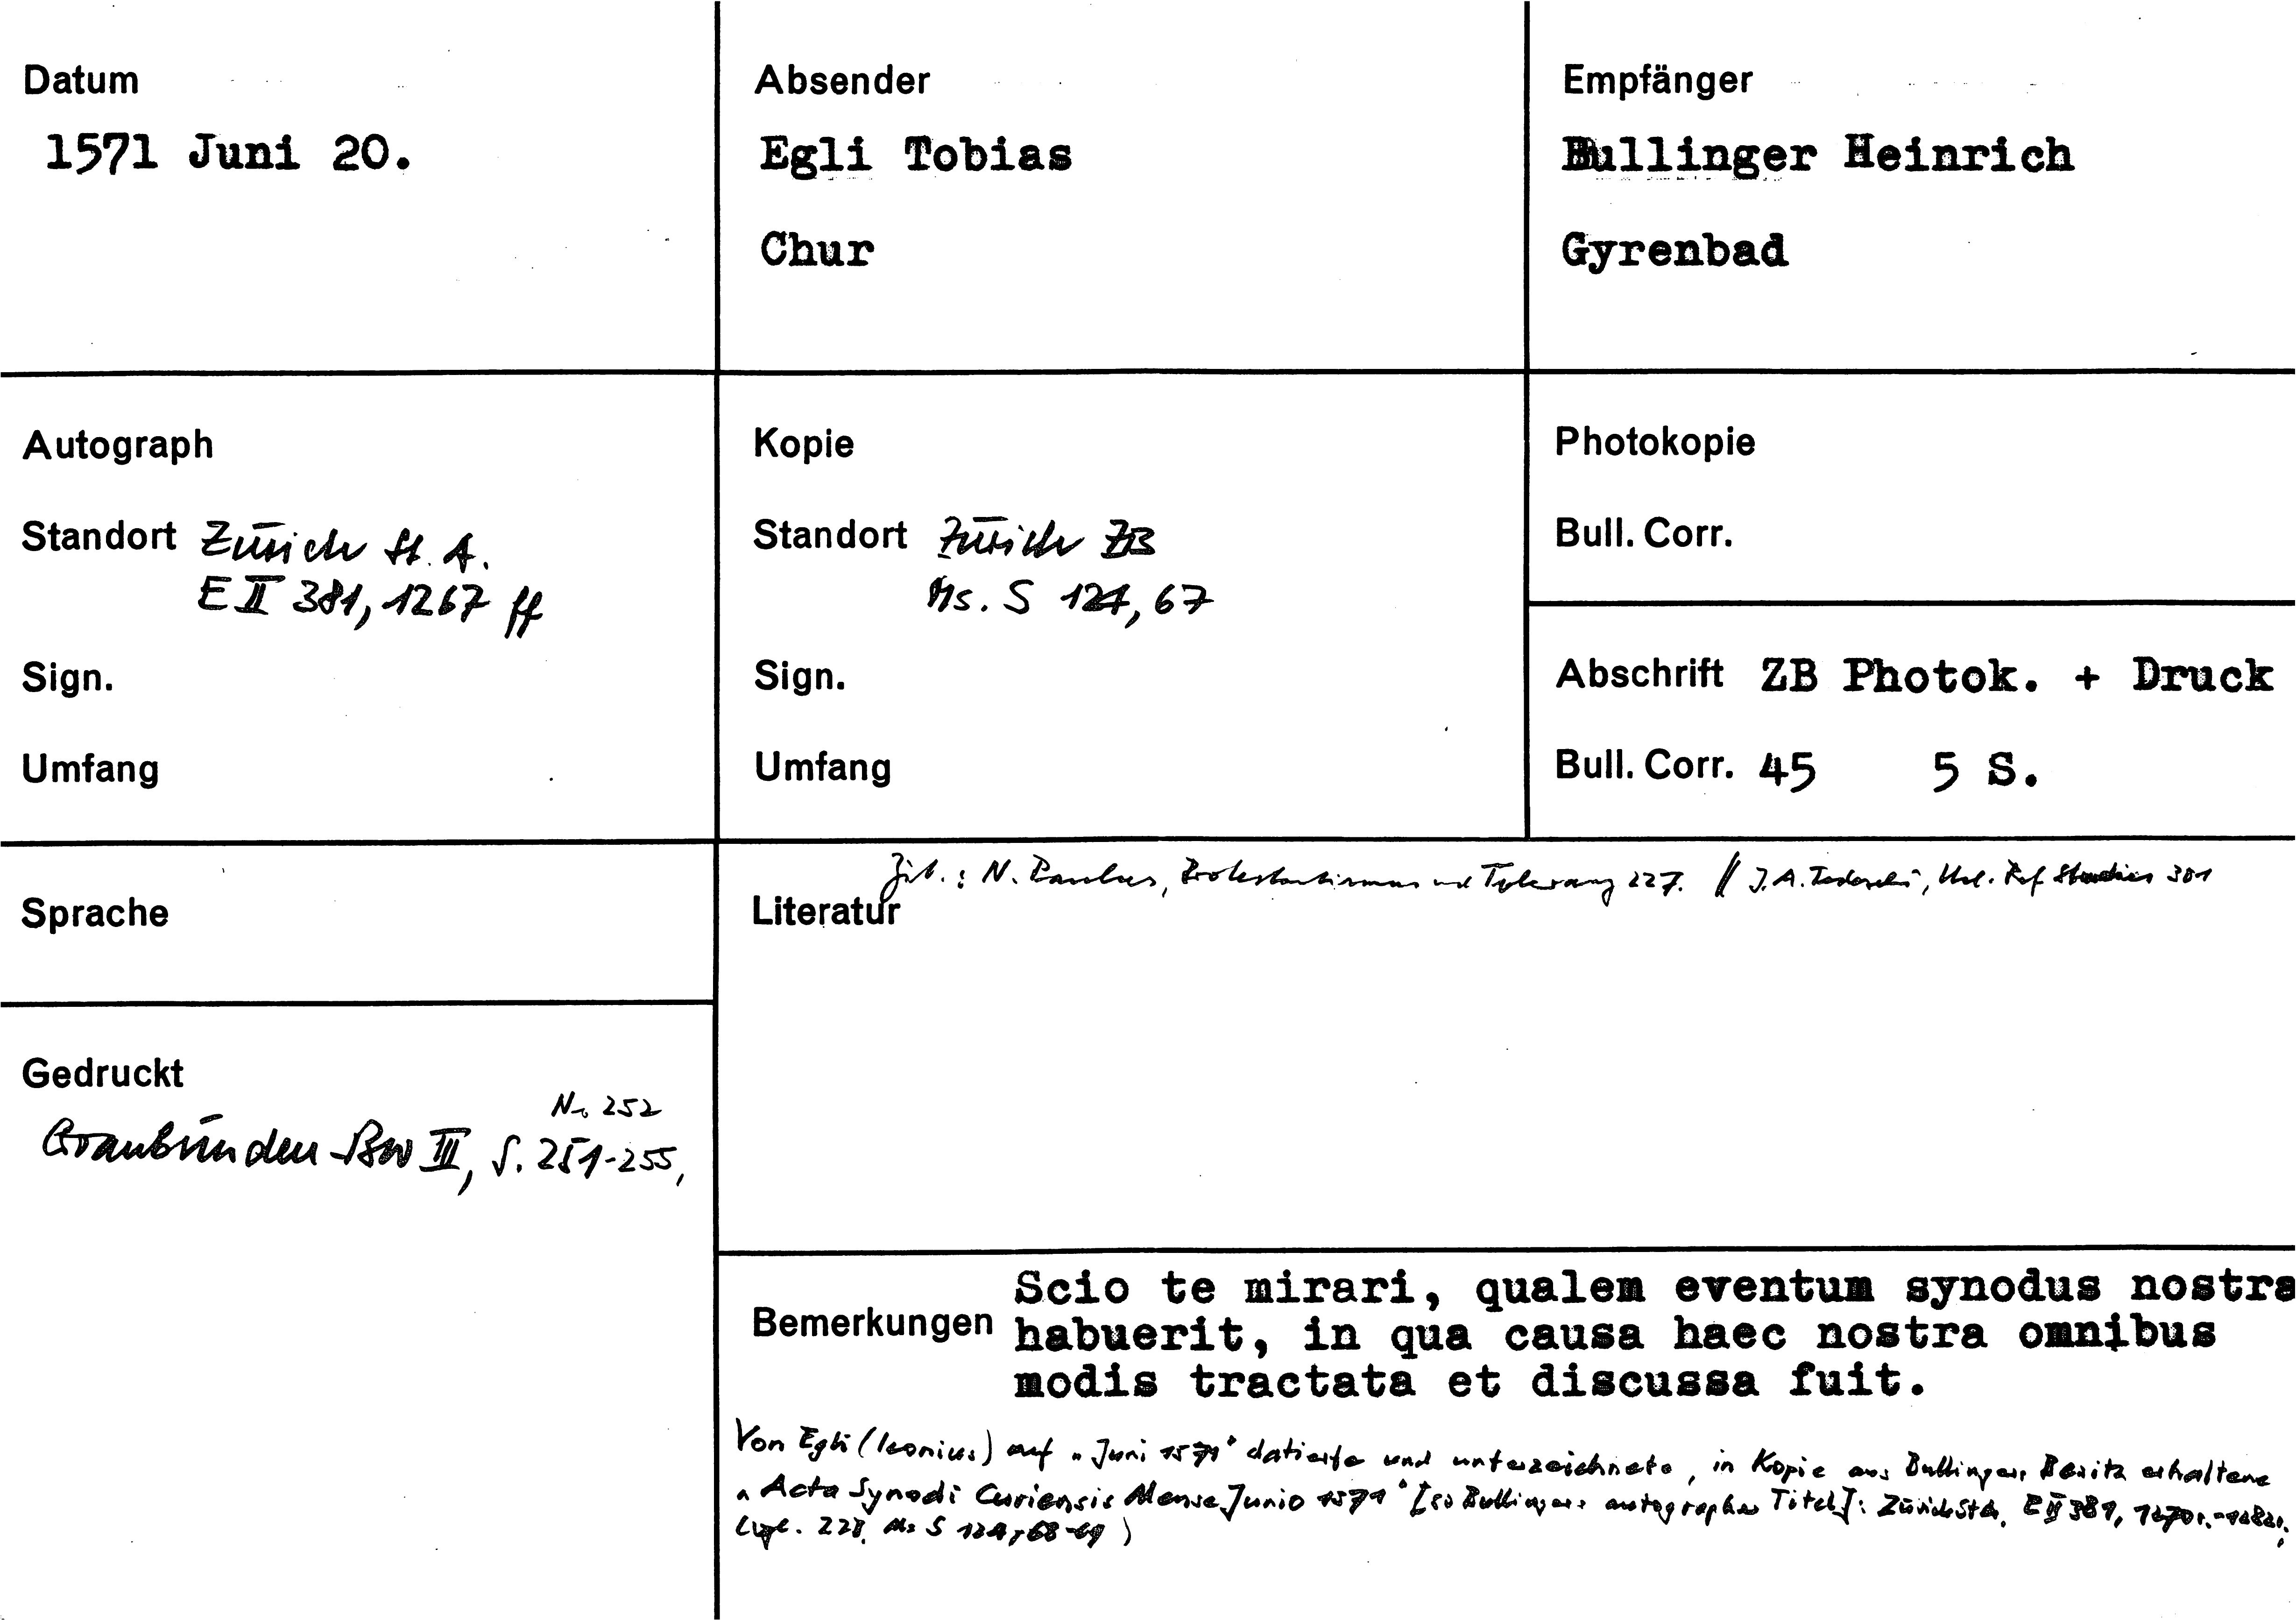 Datum
1571 Juni 20.
Absender
Egli Tobias
Chur
Empfänger
Bullinger Heinrich
Gyrenbad
Autograph
Standort Zürich St. A.
E II 381, 1267 ff
Sign.
Umfang
Kopie
Standort Zürich ZB
Ms. S 124, 67
Sign.
Umfang
Photokopie
Bull. Corr.
Abschrift ZB Photok. + Druck
Bull. Corr. 45 5 S.
Sprache
Zit.: N. Paulus, Protestantismus und Toleranz 227. // J. A. Tedeschi, Ital. Ref. Studies 301
Literatur
Gedruckt
No 252
Graubünden Bw III, S. 251-255,
Bemerkungen
Scio te mirari, qualem eventum synodus nostra
habuerit, in qua causa haec nostra omnibus
modis tractata et discussa fuit.
Von Egli (Iconius) auf "Juni 1571" datierte und unterzeichnete, in Kopie aus Bullingers Besitz erhaltene
"Acta Synodi Curiensis Mense Junio 1571" [so Bullingers autographer Titel]: Zürich StA, E II 381,
Ms S